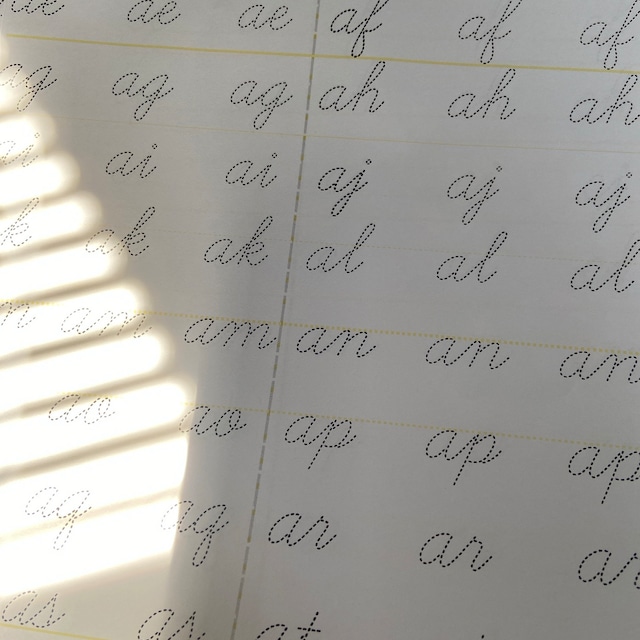 ae ae ae af af af
ag ag ag ah ah ah
ai ai ai aj aj aj
k ak ak al al al
m am am an an an
ao ao ap ap ap
aq aq ar ar ar
as as at